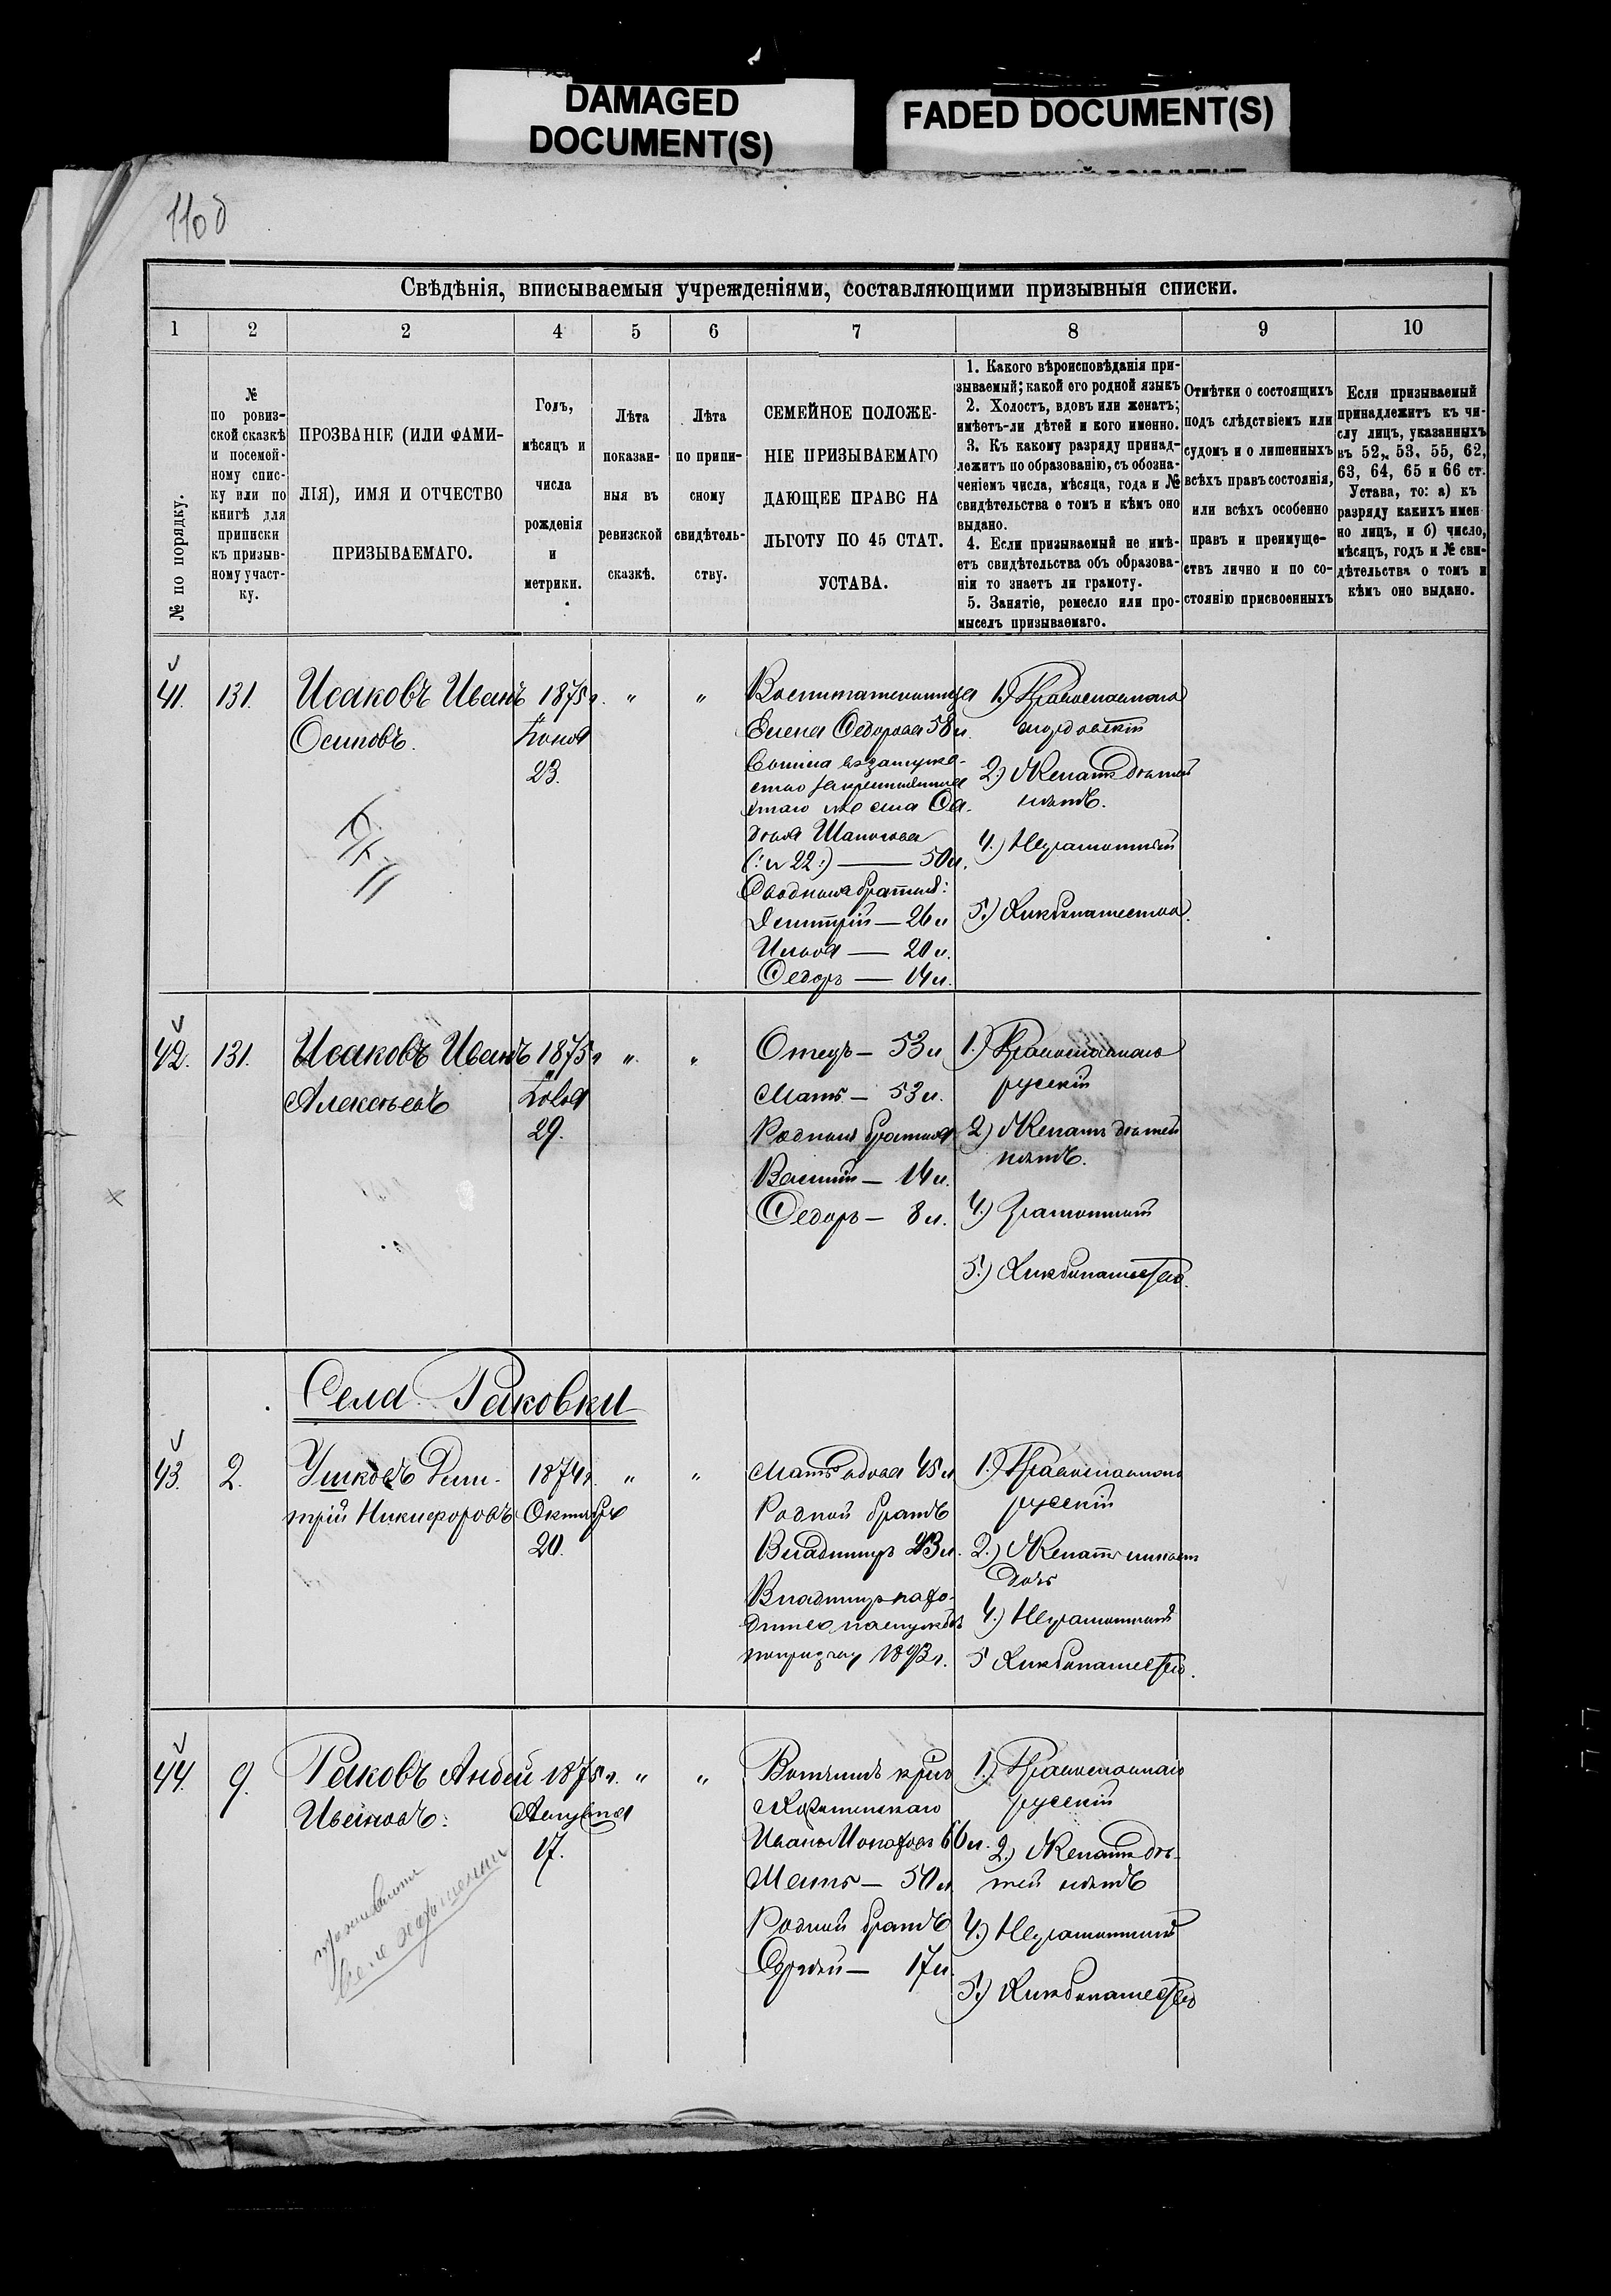 DAMAGED
DOCUMENT(S)
FADED DOCUMENT(S)
110 об
Свѣдѣнія, вписываемыя учрежденіями, составляющими призывныя списки.
1 2 2 4 5 6 7 8 9 10
№ по порядку.
№
по ровиз-
ской сказкѣ
и посемей-
ному спис-
ку или по
книгѣ для
приписки
къ призыв-
ному участ-
ку.
ПРОЗВАНІЕ (ИЛИ ФАМИ-
ЛІЯ), ИМЯ И ОТЧЕСТВО
ПРИЗЫВАЕМАГО.
Годъ,
мѣсяцъ и
числа
рожденія
и
метрики.
Лѣта
показан-
ныя въ
ревизской
сказкѣ.
Лѣта
по припи-
сному
свидѣтель-
ству.
СЕМЕЙНОЕ ПОЛОЖЕ-
НІЕ ПРИЗЫВАЕМАГО
ДАЮЩЕЕ ПРАВО НА
ЛЬГОТУ ПО 45 СТАТ.
УСТАВА.
1. Какого вѣроисповѣданія при-
зываемый; какой его родной языкъ
2. Холостъ, вдовъ или женатъ;
имѣетъ-ли дѣтей и кого именно.
3. Къ какому разряду принад-
лежитъ по образованію, съ обозна-
ченіемъ числа, мѣсяца, года и №
свидѣтельства о томъ и кѣмъ оно
выдано.
4. Если призываемый не имѣ-
етъ свидѣтельства объ образова-
ніи то знаетъ ли грамоту.
5. Занятіе, ремесло или про-
мыселъ призываемаго.
Отмѣтки о состоящихъ
подъ слѣдствіемъ или
судомъ и о лишенныхъ
всѣхъ правъ состоянія,
или всѣхъ особенно
правъ и преимуще-
ствъ лично и по со-
стоянію присвоенныхъ
Если призываемый
принадлежитъ къ чи-
слу лицъ, указанныхъ
въ 52, 53, 55, 62,
63, 64, 65 и 66 ст.
Устава, то: а) къ
разряду какихъ имен
но лицъ, и б) число,
мѣсяцъ, годъ и № сви-
дѣтельства о томъ и
кѣмъ оно выдано.
41. 131.
Исаковъ Иванъ
Осиповъ.
1875 г.
Іюня
23.
" "
Воспитательница
Елена Федорова 58 л.
(: № 22 :) — 50 л.
Сводныя братья:
Дмитрій — 26 л
Илья — 20 л.
Федоръ — 14 л.
1.) Православнаго
мордовскій
2.) Женатъ дѣтей
нѣтъ.
4.) Неграмотный
5.) Хлѣбопашество.
42. 131.
Исаковъ Иванъ
Алексѣевъ
1875 г
Іюля
29.
" "
Отецъ — 53 л
Мать — 53 л.
Родныя братья
Василій — 14 л.
Федоръ — 8 л.
1.) Православнаго
русскій
2) Женатъ дѣтей
нѣтъ.
4.) Грамотный
5.) Хлѣбопашество.
Села Раковки
43. 2.
Ушковъ Дми-
трій Никифоровъ
1874 г.
Октября
20.
" "
Мать вдова 45 л
Родной братъ
Владиміръ 23 л.
Владиміръ нахо-
дится на службѣ
по призыву 1893 г.
1.) Православнаго
русскій
2.) Женатъ имѣетъ
дочь
4.) Неграмотный
5 Хлѣбопашество.
44. 9.
Раковъ Андрей
Ивановъ.
1875 г.
Августа
17.
" "
Иванъ 66 л.
Мать — 50 л
Родной братъ
Сергѣй — 17 л.
1.) Православнаго
русскій
2.) Женатъ дѣ-
тей нѣтъ
4.) Неграмотный
5.) Хлѣбопашество